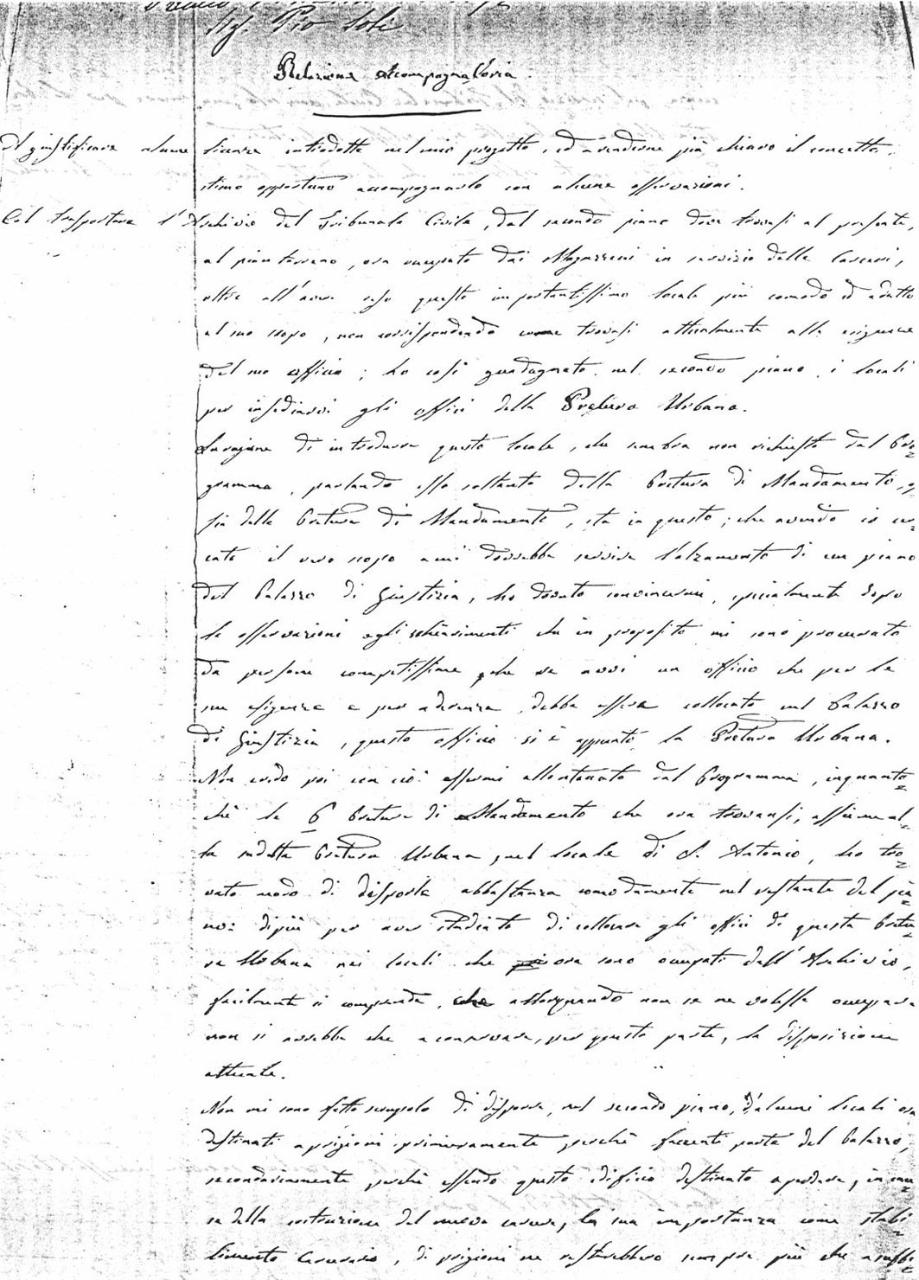 Sig. Pio Soli
Relazione Accompagnatoria.
A giustificare alcune licenze introdotte nel mio progetto, ed a rendione più chiaro il concetto,
stimo opportuno accompagnarlo con alcune osservazioni.
Col trasportare l'Archivio del Tribunale Civile, dal secondo piano dove trovasi al presente,
al pian terreno, ora occupato dai Magazzeni in servizio delle Carceri,
oltre all'aver reso questo importantissimo locale più comodo ed adatto
al suo scopo, non corrispondendo come trovasi attualmente alle esigenze
del suo officio; ho così guadagnato nel secondo piano i locali
per insediarvi gli offici della Pretura Urbana.
La ragione di introdurre questo locale, che sembra non richiesto dal Pro=
gramma, parlando esso soltanto della Pretura di Mandamento, os=
sia delle Preture di Mandamento, sta in questo; che avendo io cer=
cato il vero scopo a cui dovrebbe servire l'alzamento di un piano
del Palazzo di Giustizia, ho dovuto convincermi, specialmente dopo
le osservazioni e gli schiarimenti che in proposito mi sono procurato
da persone competentissime, che se avvi un officio che per le
sue esigenze e per aderenza debba essere collocato nel Palazzo
di Giustizia, questo officio si è appunto la Pretura Urbana.
Non credo poi con ciò essermi allontanato dal Programma, inquanto=
chè le 6 Preture di Mandamento che ora trovansi, assieme al=
la suddetta Pretura Urbana, nel locale di S. Antonio, ho tro=
vato modo di disporle abbastanza comodamente nel restante del pia=
no: di più per aver studiato di collocare gli offici di questa Pretu=
ra Urbana nei locali che ora sono occupati dall'Archivio,
facilmente si comprende, che allorquando non se ne volesse occupare
non si avrebbe che a conservare, per questa parte, la disposizione
attuale.
Non mi sono fatto scrupolo di disporre, nel secondo piano, d'alcuni locali ora
destinati a prigioni primieramente perchè facenti parte del Palazzo,
secondariamente perchè essendo questo edificio destinato a perdere, in cau=
sa della costruzione del nuovo carcere, la sua importanza come stabi=
limento Carcerario, di prigioni ne resterebbero sempre più che a suffi=